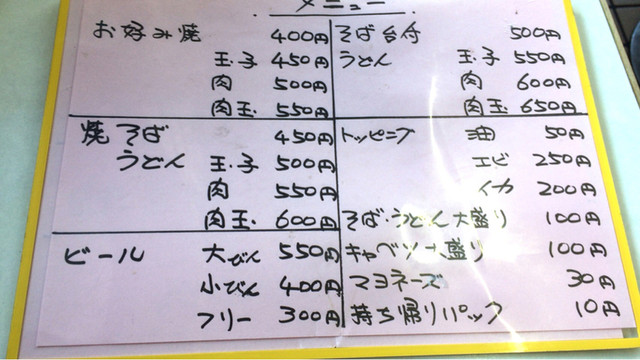 メニュー
お好み焼 400円
玉子 450円
肉 500円
肉玉 550円
そば台付 500円
うどん 玉子 550円
肉 600円
肉玉 650円
焼そば 450円
うどん 玉子 500円
肉 550円
肉玉 600円
トッピング 油 50円
エビ 250円
イカ 200円
そば・うどん大盛り 100円
キャベツ大盛り 100円
マヨネーズ 30円
持ち帰りパック 10円
ビール 大びん 550円
小びん 400円
フリー 300円